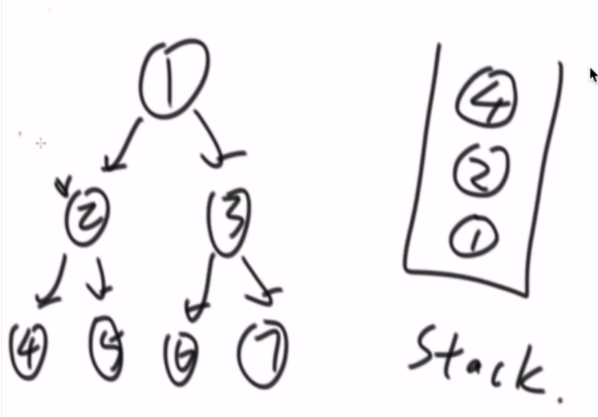 1
2 3
4 5 6 7
4
2
1
Stack.